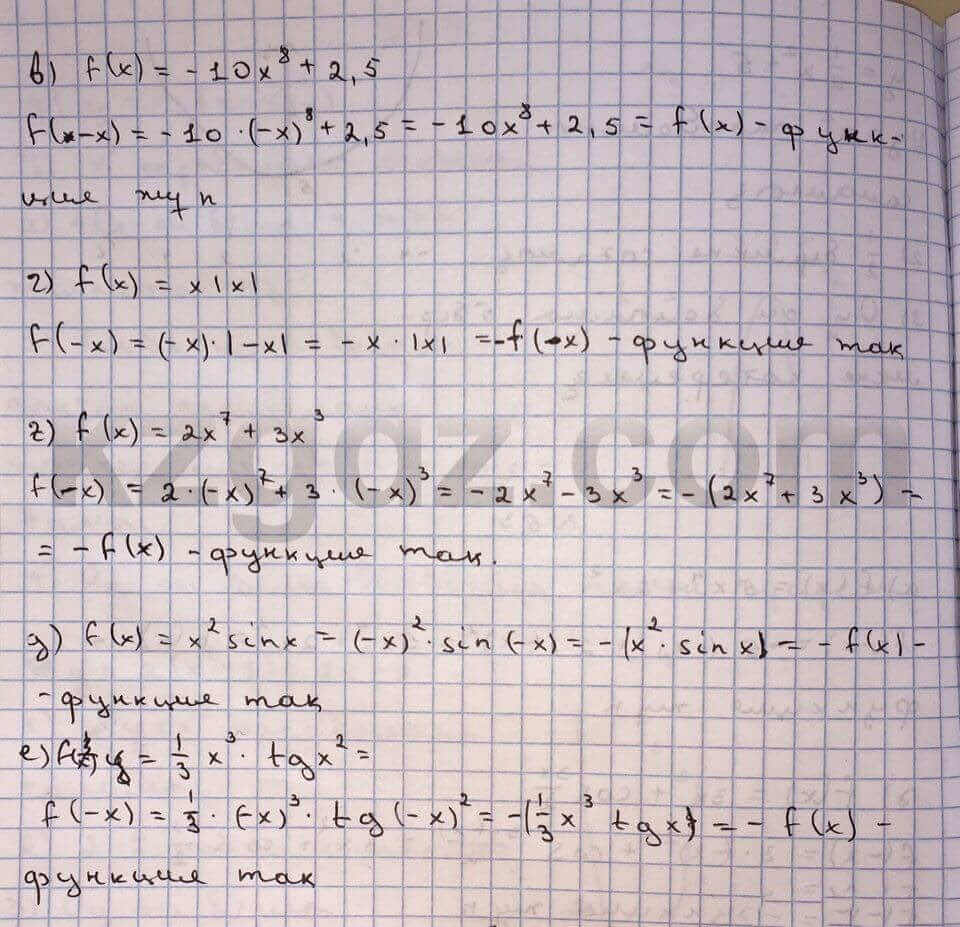 в) f(x) = -10x⁸ + 2,5
f(-x) = -10 · (-x)⁸ + 2,5 = -10x⁸ + 2,5 = f(x) - функ-
ция жұп
г) f(x) = x|x|
f(-x) = (-x)·|-x| = -x · |x| = -f(x) - функция тақ
г) f(x) = 2x⁷ + 3x³
f(-x) = 2·(-x)⁷ + 3 · (-x)³ = -2x⁷ - 3x³ = -(2x⁷ + 3x³) =
= -f(x) - функция тақ.
kzgdz.com
д) f(x) = x² sinx = (-x)² · sin(-x) = -(x² · sin x) = -f(x) -
- функция тақ
е) y = 1/3 x³ · tgx² =
f(-x) = 1/3 · (-x)³ · tg(-x)² = -(1/3 x³ tgx) = - f(x) -
функция тақ